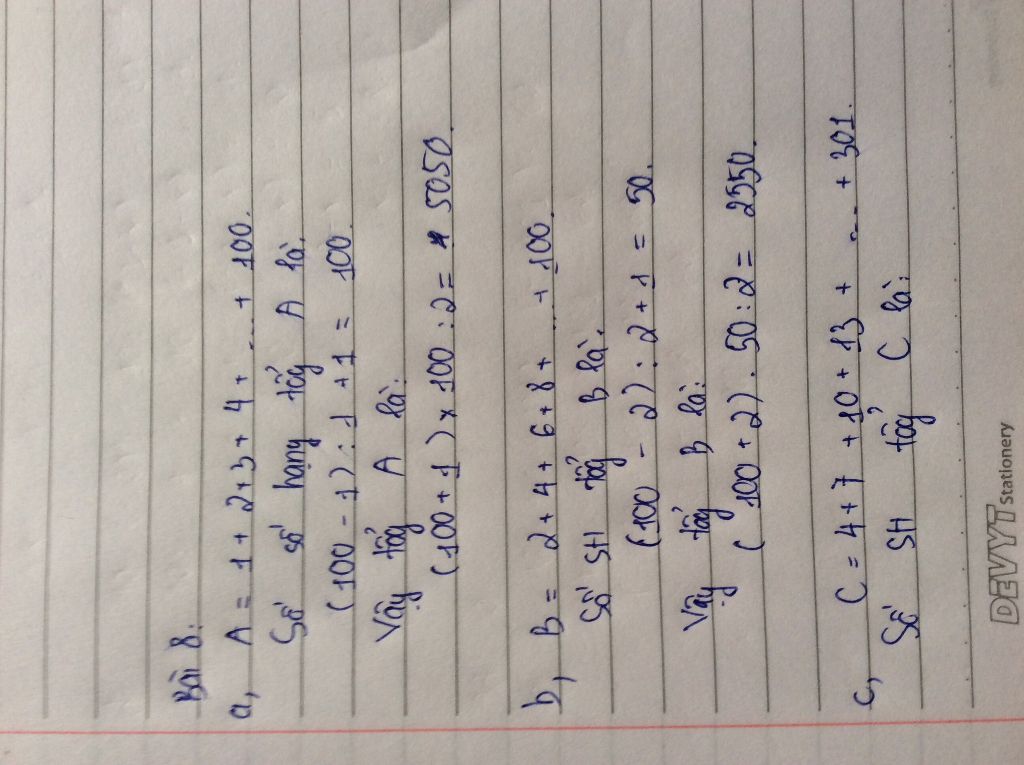 Bài 8:
a, A = 1 + 2 + 3 + 4 + ... + 100.
Số số hạng tổg A là:
(100 - 1) : 1 + 1 = 100.
Vậy tổg A là:
(100 + 1) x 100 : 2 = 5050.
b, B = 2 + 4 + 6 + 8 + ... + 100.
Số SH tổg B là:
(100 - 2) : 2 + 1 = 50.
Vậy tổg B là:
(100 + 2) . 50 : 2 = 2550.
c, C = 4 + 7 + 10 + 13 + ... + 301.
Số SH tổg C là:
DEVYT Stationery